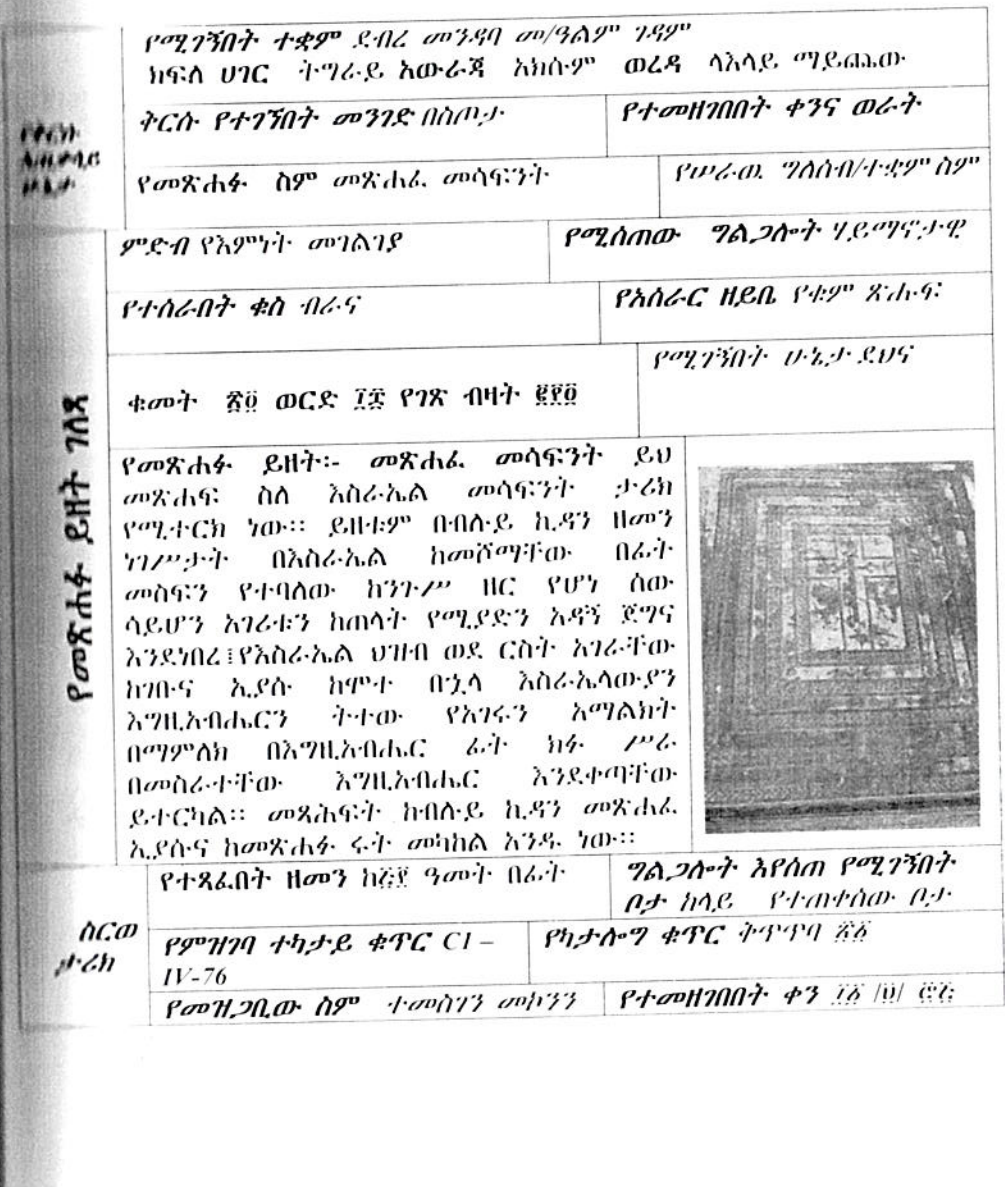 የሚገኝበት ተቋም ደብረ መንዳባ መ/ዓልም ገዳም
ክፍለ ሀገር ትግራይ አውራጃ አክሱም ወረዳ ላእላይ ማይጨው
ቅርሱ የተገኘበት መንገድ በስጦታ
የተመዘገበበት ቀንና ወራት
የመጽሐፉ ስም መጽሐፈ መሳፍንት
የሠራዉ ግለሰብ/ተቋም ስም
ምድብ የእምነት መገልገያ
የሚሰጠው ግልጋሎት ሃይማኖታዊ
የተሰራበት ቁስ ብራና
የአሰራር ዘይቤ የቁም ጽሑፍ
ቁመት ወርድ የገጽ ብዛት
የሚገኝበት ሁኔታ ደህና
የመጽሐፉ ይዘት ገለጻ
የመጽሐፉ ይዘት፡- መጽሐፈ መሳፍንት ይህ
መጽሐፍ ስለ እስራኤል መሳፍንት ታሪክ
የሚተርክ ነው። ይዘቱም በብሉይ ኪዳን ዘመን
ነገሥታት በእስራኤል ከመሾማቸው በፊት
መስፍን የተባለው ከንጉሥ ዘር የሆነ ሰው
ሳይሆን አገሪቱን ከጠላት የሚያድን አዳኝ ጀግና
እንደነበረ፤የእስራኤል ህዝብ ወደ ርስት አገራቸው
ከገቡና ኢያሱ ከሞተ በኋላ እስራኤላውያን
እግዚአብሔርን ትተው የአገሩን አማልክት
በማምለክ በእግዚአብሔር ፊት ክፉ ሥራ
በመስራተቸው እግዚአብሔር እንደቀጣቸው
ይተርካል። መጻሕፍት ከብሉይ ኪዳን መጽሐፈ
ኢያሱና ከመጽሐፉ ሩት መካከል አንዱ ነው።
ስርወ
ታሪክ
የተጻፈበት ዘመን ዓመት በፊት
ግልጋሎት እየሰጠ የሚገኝበት
ቦታ ከላይ የተጠቀሰው ቦታ
የምዝገባ ተካታይ ቁጥር C1 –
IV-76
የካታሎግ ቁጥር ቅጥጥባ
የመዝጋቢው ስም ተመስገን መኮንን
የተመዘገበበት ቀን